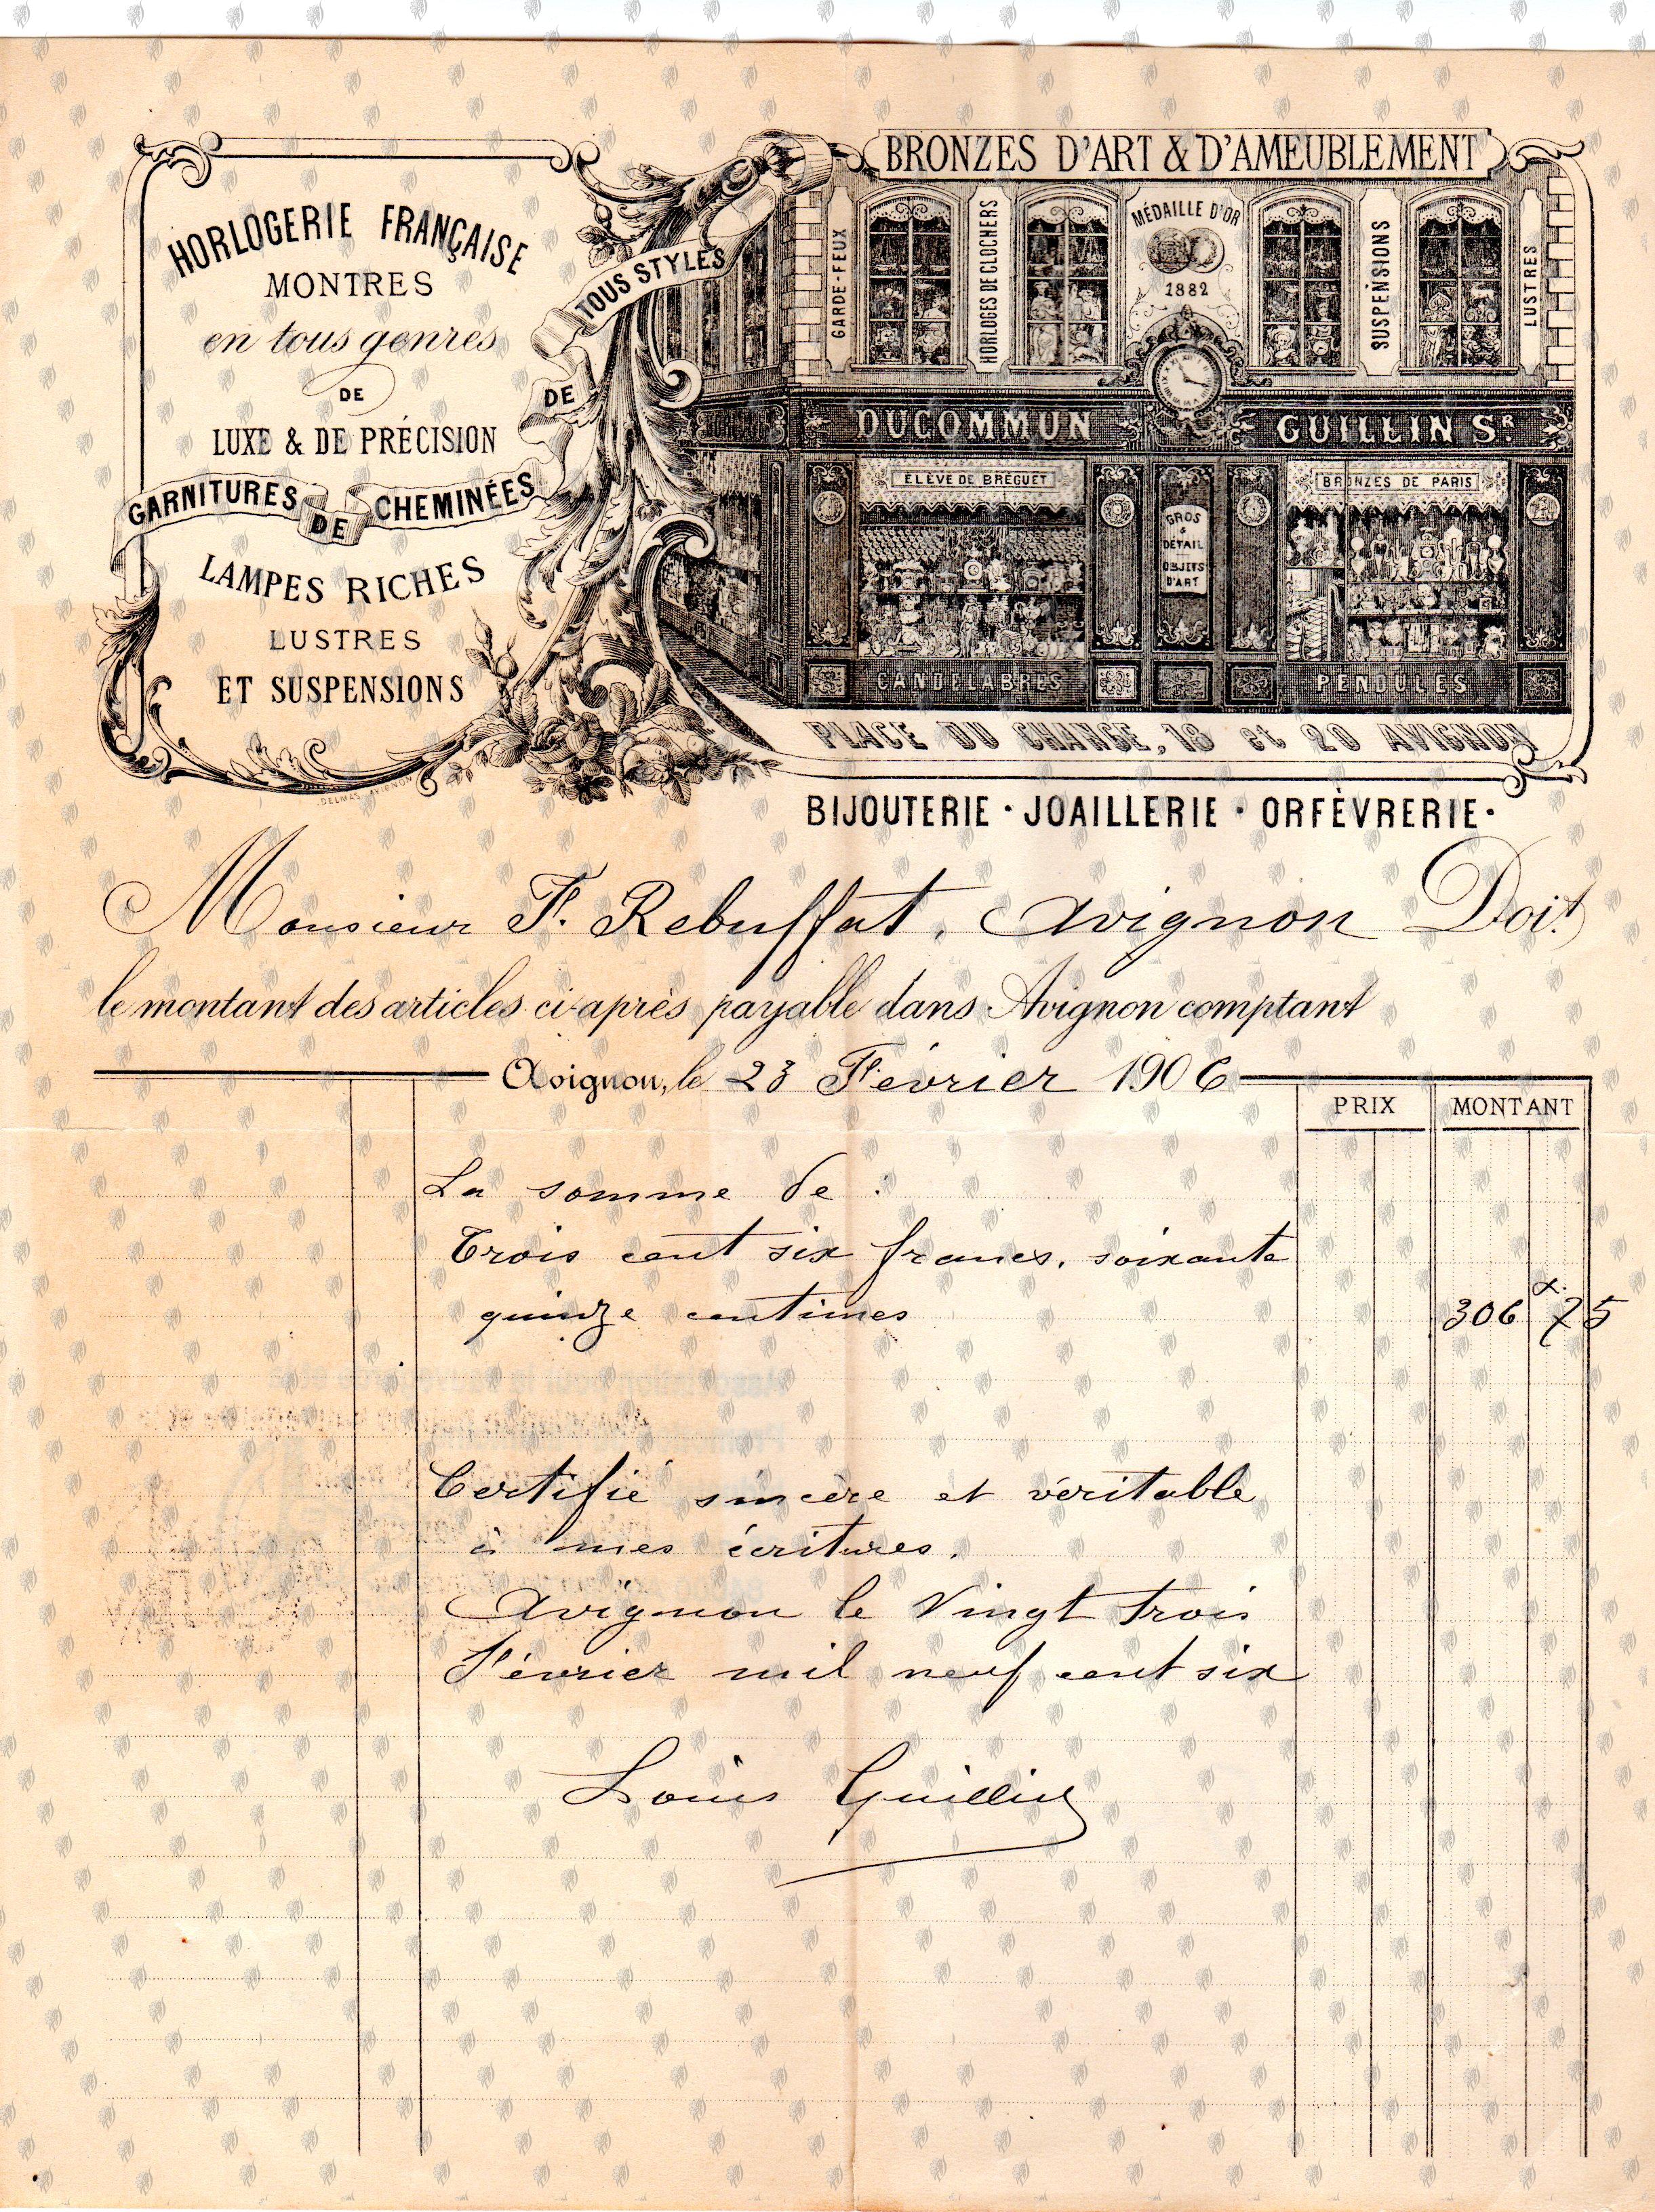 BRONZES D'ART & D'AMEUBLEMENT
HORLOGERIE FRANÇAISE
MONTRES
en tous genres
DE
LUXE & DE PRÉCISION
GARNITURES DE CHEMINÉES
DE
TOUS STYLES
LAMPES RICHES
LUSTRES
ET SUSPENSIONS
DELMAS AVIGNON
GARDE-FEUX
HORLOGES DE CLOCHERS
MÉDAILLE D'OR
1882
SUSPENSIONS
LUSTRES
DUCOMMUN
GUILLIN SR.
ÉLÈVE DE BREGUET
GROS
&
DÉTAIL
OBJETS
D'ART
BRONZES DE PARIS
CANDELABRES
PENDULES
PLACE DU CHANGE, 18 et 20 AVIGNON
BIJOUTERIE · JOAILLERIE · ORFÈVRERIE ·
Monsieur F. Rebuffat, Avignon Doit
le montant des articles ci-après payable dans Avignon comptant
Avignon, le 23 Février 1906
PRIX MONTANT
La somme de :
Trois cent six francs, soixante
quinze centimes 306 75
Certifié sincère et véritable
à mes écritures.
Avignon le Vingt trois
Février mil neuf cent six
Louis Guillin